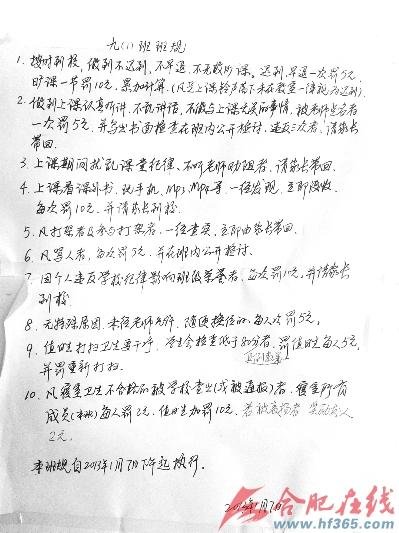 九(1)班班规
1. 按时到校，做到不迟到，不早退，不无故旷课。迟到、早退一次罚5元，
旷课一节罚10元，累加计算。(凡是上课铃声落下未在教室一律视为迟到)
2. 做到上课认真听讲，不乱讲话，不做与上课无关的事情，被老师点名者
一次罚5元，并写出书面检查在班内公开检讨，违反3次者，请家长
带回。
3. 上课期间扰乱课堂纪律，不听老师劝阻者，请家长带回。
4. 上课看课外书、玩手机、mp3、mp4等，一经发现，立即没收，
每次罚10元，并请家长到校。
5. 凡打架者及参与打架者，一经查实，立即由家长带回。
6. 凡骂人者，每次罚5元，并在班内公开检讨。
7. 因个人违反学校纪律影响班级荣誉者，每次罚10元，并请家长
到校。
8. 无特殊原因，未经老师允许，随便换位的，每人次罚5元。
9. 值日生打扫卫生要干净，学生会检查低于 分者，罚值日生每人5元，
并罚重新打扫。
10. 凡寝室卫生不合格的被学校查出(或被通报)者，寝室所有
成员(本班)每人罚2元，值日生加罚10元，若被表扬者 奖励每人
2元。
本班规自2013年1月7日下午起执行。
2013年1月7日
合肥在线
www.hf365.com